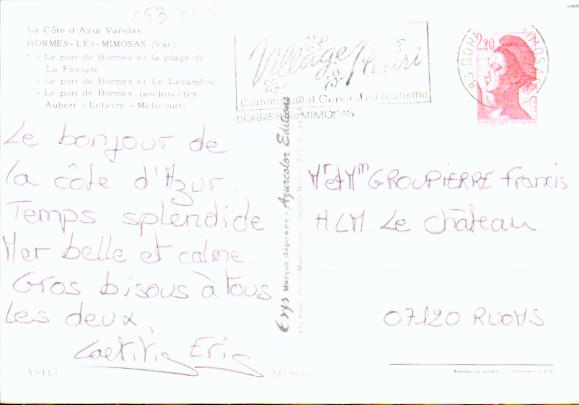 La Côte d'Azur Varoise
BORMES-LES-MIMOSAS (Var)
1 - Le port de Bormes et la plage de
La Favière
- Le port de Bormes et Le Lavandou
- Le port de Bormes (architectes
Aubert - Lefèvre - Mélicourt)
Le bonjour de
la côte d'Azur.
Temps splendide
Mer belle et calme.
Gros bisous à tous
les deux.
Laetitia Eric
Village Fleuri
Commissariat Général au Tourisme
BORMES MIMOSAS
2,20
Marque déposée - Azurcolor Editions
Mr et Mm GROUPIERRE Francis
HLM Le château
07120 RUOMS